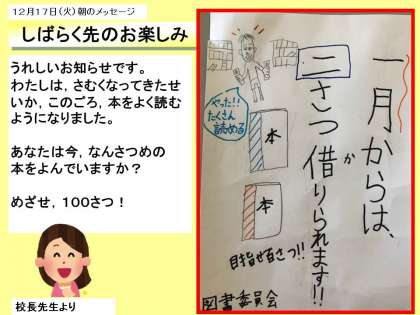 12月17日(火)朝のメッセージ
しばらく先のお楽しみ
うれしいお知らせです。
わたしは,さむくなってきたせ
いか,このごろ,本をよく読む
ようになりました。
あなたは今,なんさつめの
本をよんでいますか?
めざせ,100さつ!
校長先生より
一月からは、
二さつ借りられます!!
か
やった!!
たくさん
読める
本
本
目指せ百さつ!!
図書委員会